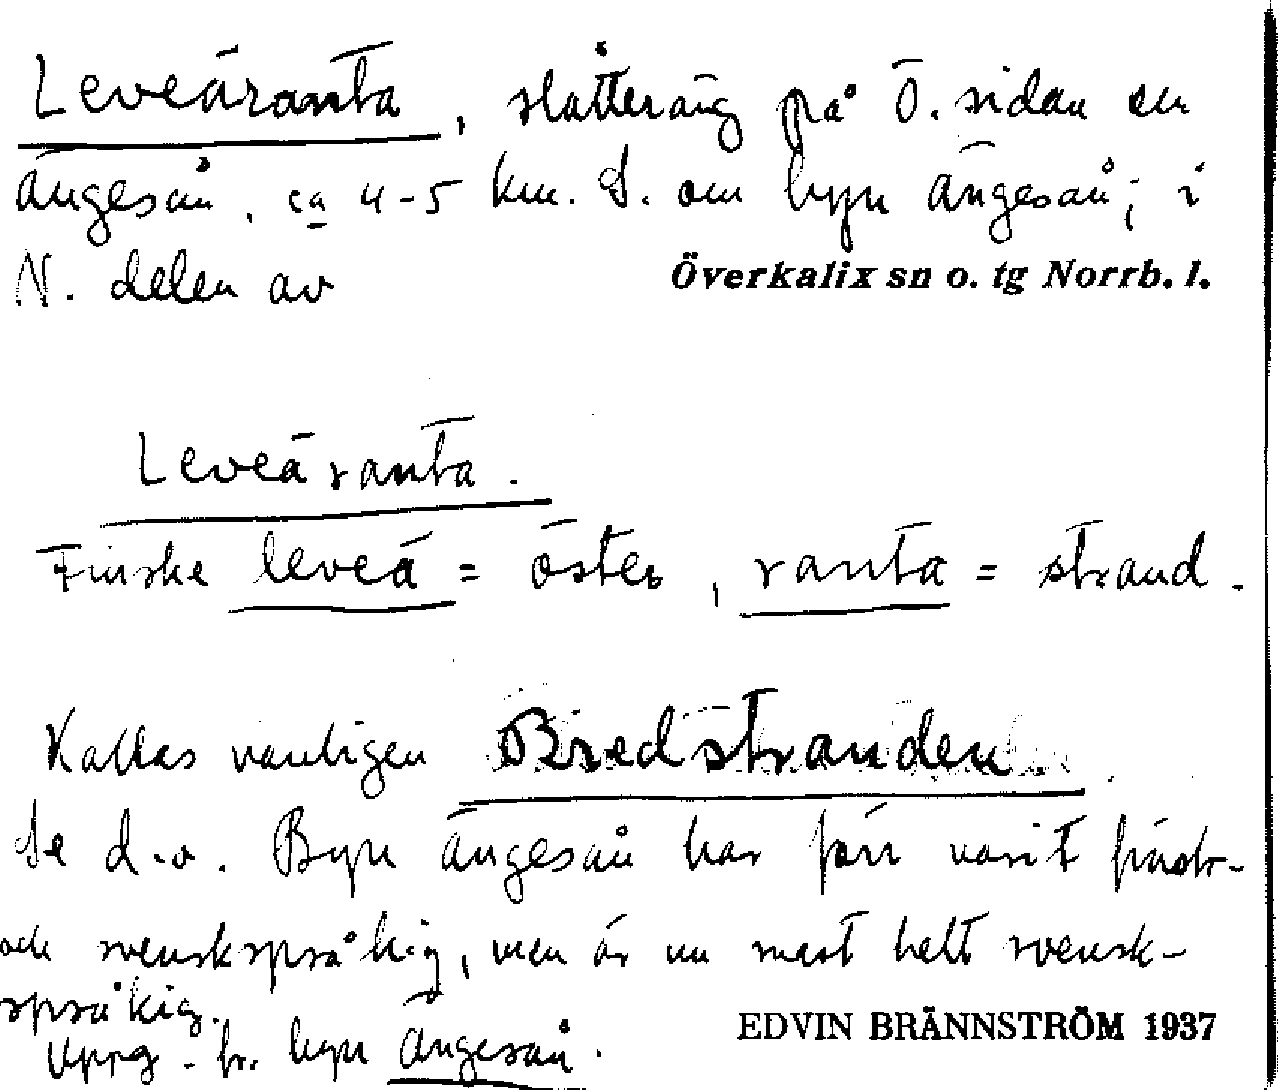 Leveäranta, slåtteräng på Ö. sidan en
ängeså, ca 4-5 km. S. om byn ängeså; i
N. delen av Överkalix sn o. tg Norrb. l.
Leveäranta.
Finske leveä = öster, ranta = strand.
Kallas vanligen Bredstranden.
Se d.o. Byn ängeså har förr varit finsk-
och svenskspråkig, men är nu mest helt svensk-
språkig.
Uppg. fr. byn ängeså.
EDVIN BRÄNNSTRÖM 1937